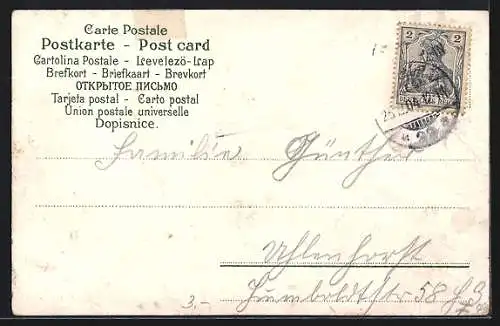 Carte Postale
Postkarte - Post card
Cartolina Postale - Levelezö-Lap
Brefkort - Briefkaart - Brevkort
ОТКРЫТОЕ ПИСЬМО
Tarjeta postal - Carto postal
Union postale universelle
Dopisnice.
2 2
Familie Günther
Uhlenhorst
Humboldtstr 58
3.-